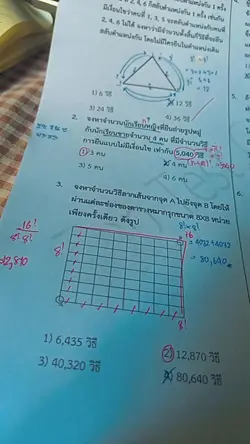 2, 4, 6 ก็สลับตำแหน่งกัน 1 ครั้ง
มีเงื่อนไขว่าคนที่ 1, 3, 5 จะสลับตำแหน่งกับคนที่
2, 4, 6 ไม่ได้ จงหาว่ามีจำนวนทั้งสิ้นกี่วิธีที่จะยืน
สลับตำแหน่งกัน โดยไม่มีใครยืนในตำแหน่งเดิม
1) 6 วิธี
2) 12 วิธี
3) 24 วิธี
4) 36 วิธี
2. จงหาจำนวนนักเรียนหญิงที่ยืนถ่ายรูปหมู่
กับนักเรียนชายจำนวน 4 คน ที่มีจำนวนวิธี
การยืนแบบไม่มีเงื่อนไข เท่ากับ 5,040 วิธี
1) 3 คน
2) 4 คน
3) 5 คน
4) 6 คน
3. จงหาจำนวนวิธีลากเส้นจากจุด A ไปยังจุด B โดยให้
ผ่านแต่ละช่องของตารางหมากรุกขนาด 8X8 หน่วย
เพียงครั้งเดียว ดังรูป
16!
8! 8!
12,870
8!
8!
16
= 80,640
1) 6,435 วิธี
2) 12,870 วิธี
3) 40,320 วิธี
4) 80,640 วิธี